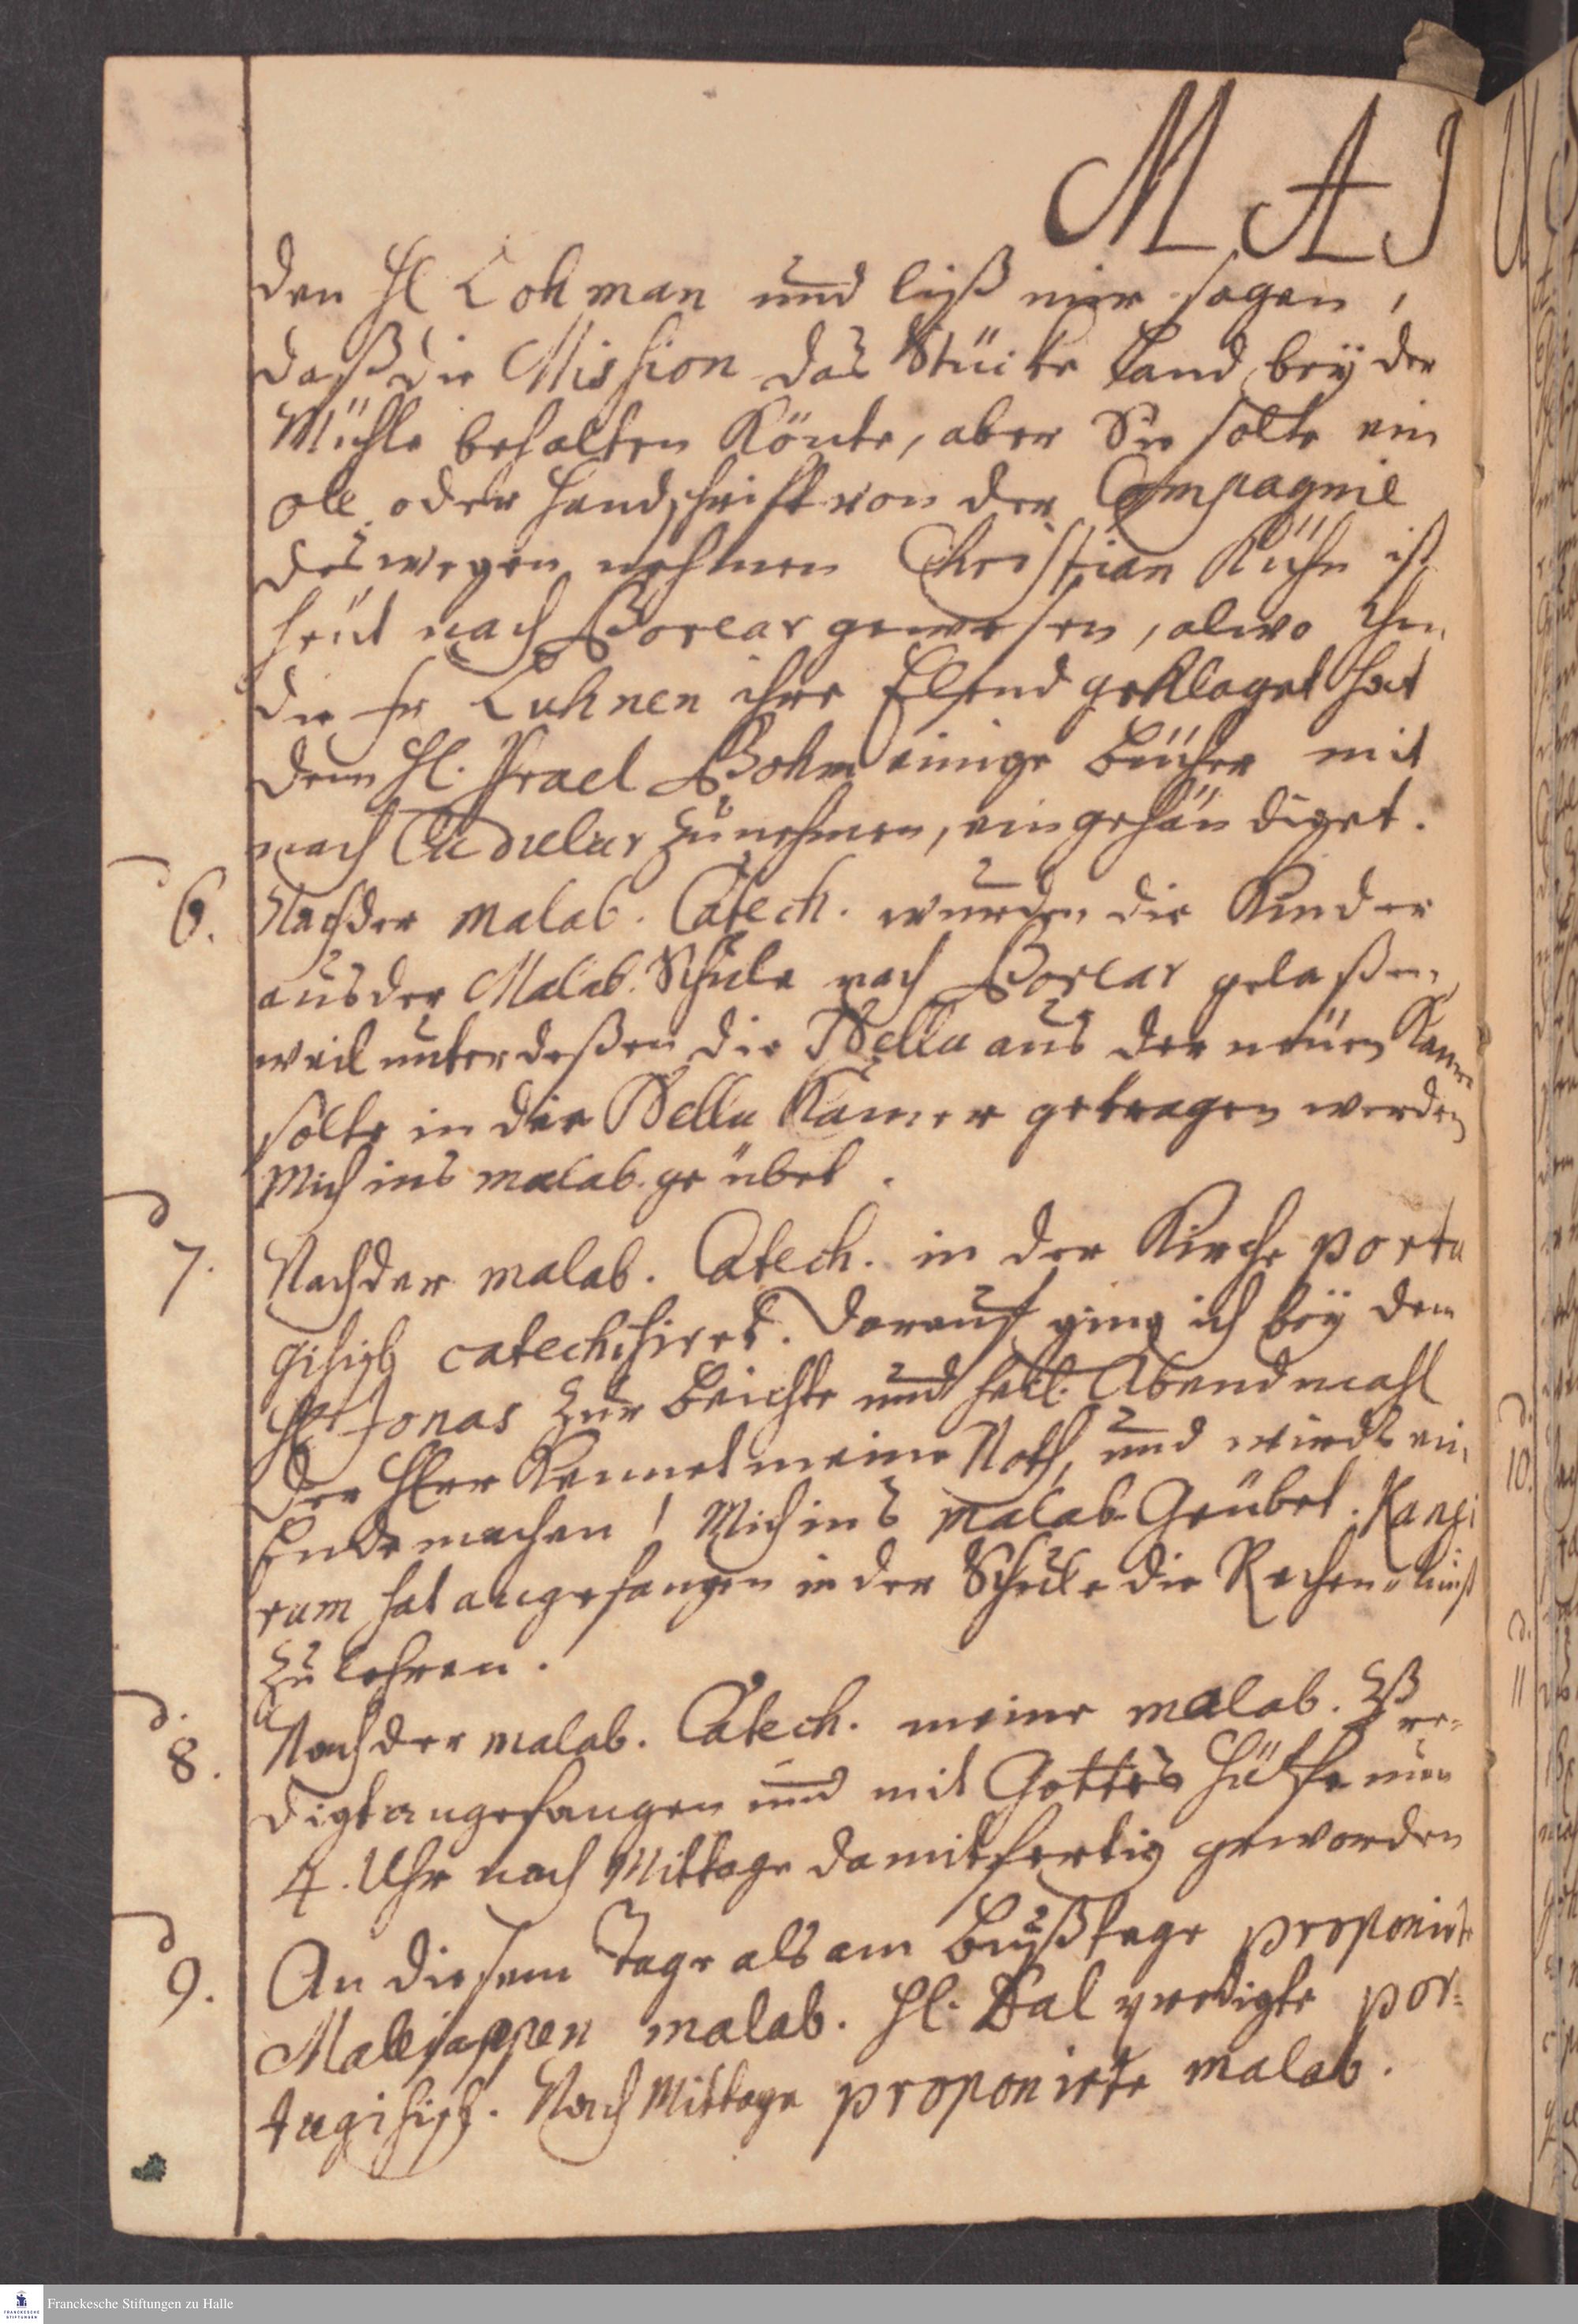 MAJ
den Hl Lohman und ließ mir sagen,
daß die Mission das Stücke Land beÿ der
Mühle behalten könte, aber Sie solte ein
ole oder Handschrifft von der Compagnie
deswegen nehmen Christian Kühn ist
heüt nach Poreiar gewesen, alwo Ihm
die Fr Luhnen ihre Elend geklaget hat
dem Hl. Israel Bohm einige Bücher mit
nach Cudulur zunehmen, eingehändiget.
d
6. Nach der malab. Catech. wurden die Kinder
aus der Malab. Schule nach Poreiar gelaßen,
weil unterdeßen die Nellu aus der neüen Kamer
solte in die Nellu Kamer getragen werden
Mich ins malab. geübet.
d
7. Nach der malab. Catech. in der Kirche portu
gisisch catechisiret. Darauf ging ich beÿ dem
Hl Jonas zur Beichte und heil. Abendmahl
Der Herr kennet meine Noth, und wirds ein
Ende machen! Mich ins malab. Geübet. Kangi
ram hat angefangen in der Schule die Rechenkunst
zu lehren.
d.
8. Nach der malab. Catech. meine malab. Pre-
digt angefangen und mit Gottes Hülffe um
4. Uhr nach Mittage damit fertig geworden
d
9. An diesem Tage als am Bußtage proponirte
Maleiappen malab. Hl. Dal predigte por-
tugisisch. Nach Mittage proponirte malab.
d.
10.
d.
11
Franckesche Stiftungen zu Halle